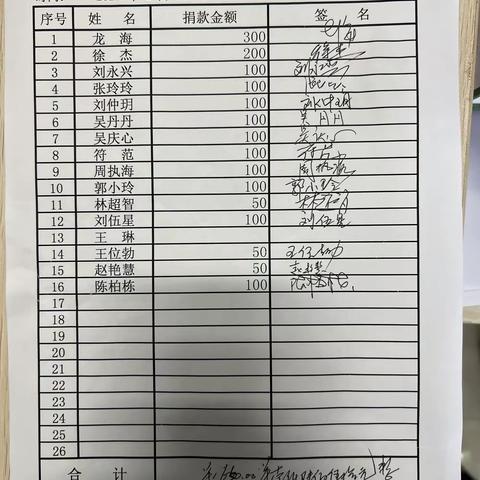 序号 姓 名 捐款金额 签 名
1 龙 海 300
2 徐 杰 200 徐杰
3 刘永兴 100 刘永兴
4 张玲玲 100
5 刘仲玥 100 刘仲玥
6 吴丹丹 100 吴丹丹
7 吴庆心 100 吴庆心
8 符 范 100 符范
9 周执海 100 周执海
10 郭小玲 100 郭小玲
11 林超智 50
12 刘伍星 100 刘伍星
13 王 琳
14 王位勃 50 王位勃
15 赵艳慧 50 赵艳慧
16 陈柏栋 100
17
18
19
20
21
22
23
24
25
26
合 计